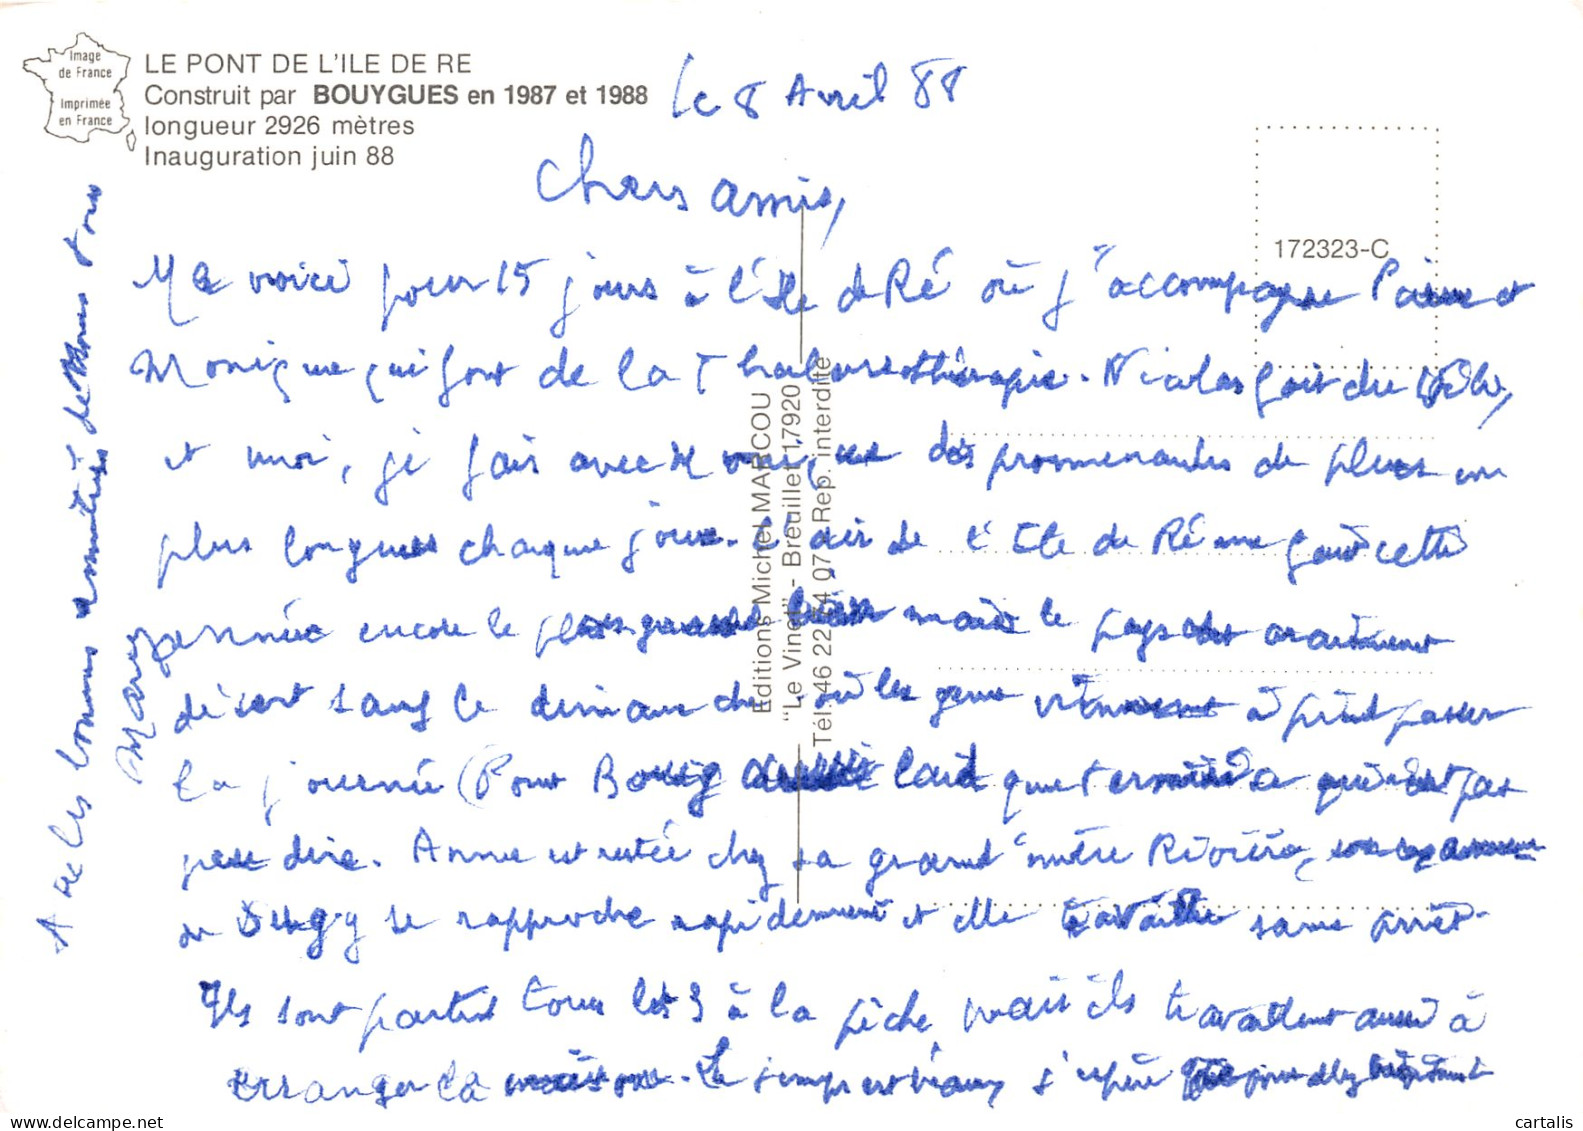 Image
de France
Imprimée
en France
LE PONT DE L'ILE DE RE
Construit par BOUYGUES en 1987 et 1988
longueur 2926 mètres
Inauguration juin 88
172323-C
Editions Michel MARCOU
"Le Vinet" - Breuillet 17920
Tél. 46 22 74 07 Rep. interdite
Le 8 Avril 88
Chers amis,
Me voici pour 15 jours à l'Ile de Ré où j'accompagne et
Monique qui font de la Thalassothérapie. Nicolas fait du vélo,
et moi, je fais avec des promenades de plus en
plus longues chaque jour. L'air de l'Ile de Ré me fait cette
année encore le plus grand bien mais le pays est vraiment
désert sauf le dimanche où les gens viennent à pied passer
la journée (Pont Bouygues laid que terminé qui n'est pas
peu dire. Anne est restée chez sa grand'mère
se rapproche rapidement et elle travaille sans arrêt.
Ils sont partis tous les 3 à la pêche mais ils travaillent aussi à
arranger la maison. Le temps est beau, j'espère
Avec les bonnes amitiés de tous